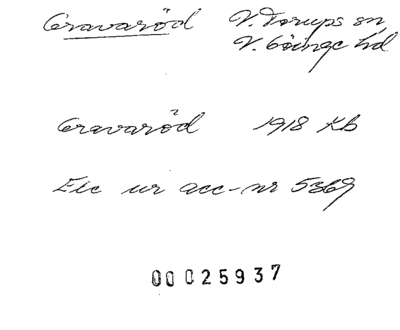 Gravaröd V. Torups sn
V. Göinge hd
Gravaröd 1918 KB
Exc ur acc-nr 5369
00025937